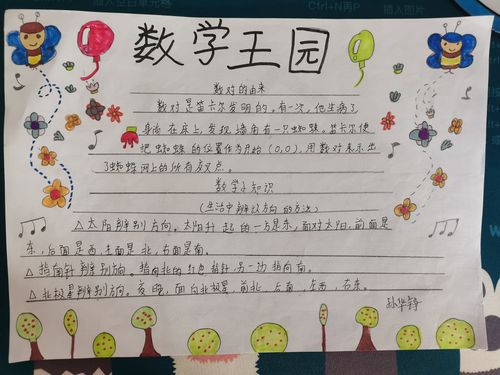 数学王园
数对的由来
数对是笛卡尔发明的。有一次，他生病了
身体在床上，发现墙角有一只蜘蛛。笛卡尔便
把蜘蛛的位置作为开始(0,0)，用数对表示出
了蜘蛛网上的所有交点。
数学小知识
(生活中辨认方向的方法)
△太阳辨别方向。太阳升起的一方是东，面对太阳，前面是
东，后面是西，左面是北，右面是南。
△指南针辨别方向。指向北的红色指针，另一边指向南。
△北极星辨别方向。夜晚，面向北极星，前北，后南，左西，右东。